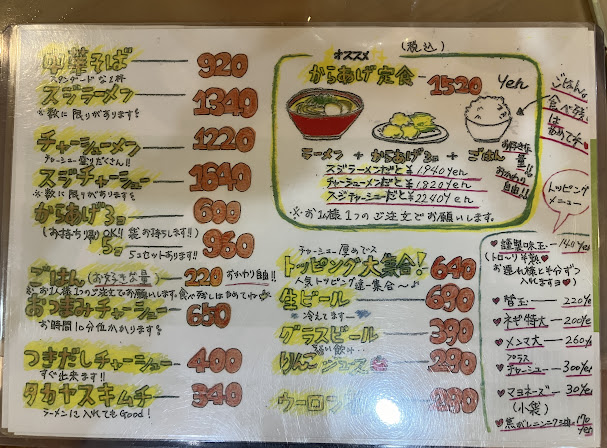 中華そば 920
スタンダードな1杯
スジラーメン 1340
※数に限りがあります!
チャーシューメン 1220
チャーシュー盛りだくさん!!
スジチャーシュー 1640
※数に限りがあります!
からあげ3コ 600
(お持ち帰りOK!! 袋お持ちします!!)
5コ 960
5コセットあります!!
ごはん(お好きな量) 220 おかわり自由!!
※お1人様1つのご注文でお願いします。食べ残しはやめてね
おつまみチャーシュー 650
お時間10分位かかります!
つきだしチャーシュー 400
すぐ出来ます!!
タカヤスキムチ 340
ラーメンに入れてもGood!
オススメ (税込)
からあげ定食 1520 Yen
ラーメン + からあげ3コ + ごはん
お好きな量!! おかわり自由!!
スジラーメンだと ¥1940Yen
チャーシューメンだと ¥1820Yen
スジチャーシューだと ¥2240Yen
※お1人様1つのご注文でお願いします。
ごはん。
食べ残し
は
やめてネ
チャーシュー厚めで
トッピング大集合! 640
人気トッピング達一集合〜♪
生ビール 690
冷えてます
グラスビール 390
軽い飲み
りんごジュース 290
ウーロン
トッピング
メニュー
謹製味玉 140Yen
(トロ〜リ半熟)
お連れ様と半分ずつ
入れますヨ
替玉 220Ye
ネギ特大 200Ye
メンマ大 260
プラス
チャーシュー 300Yen
マヨネーズ 30Yen
(小袋)